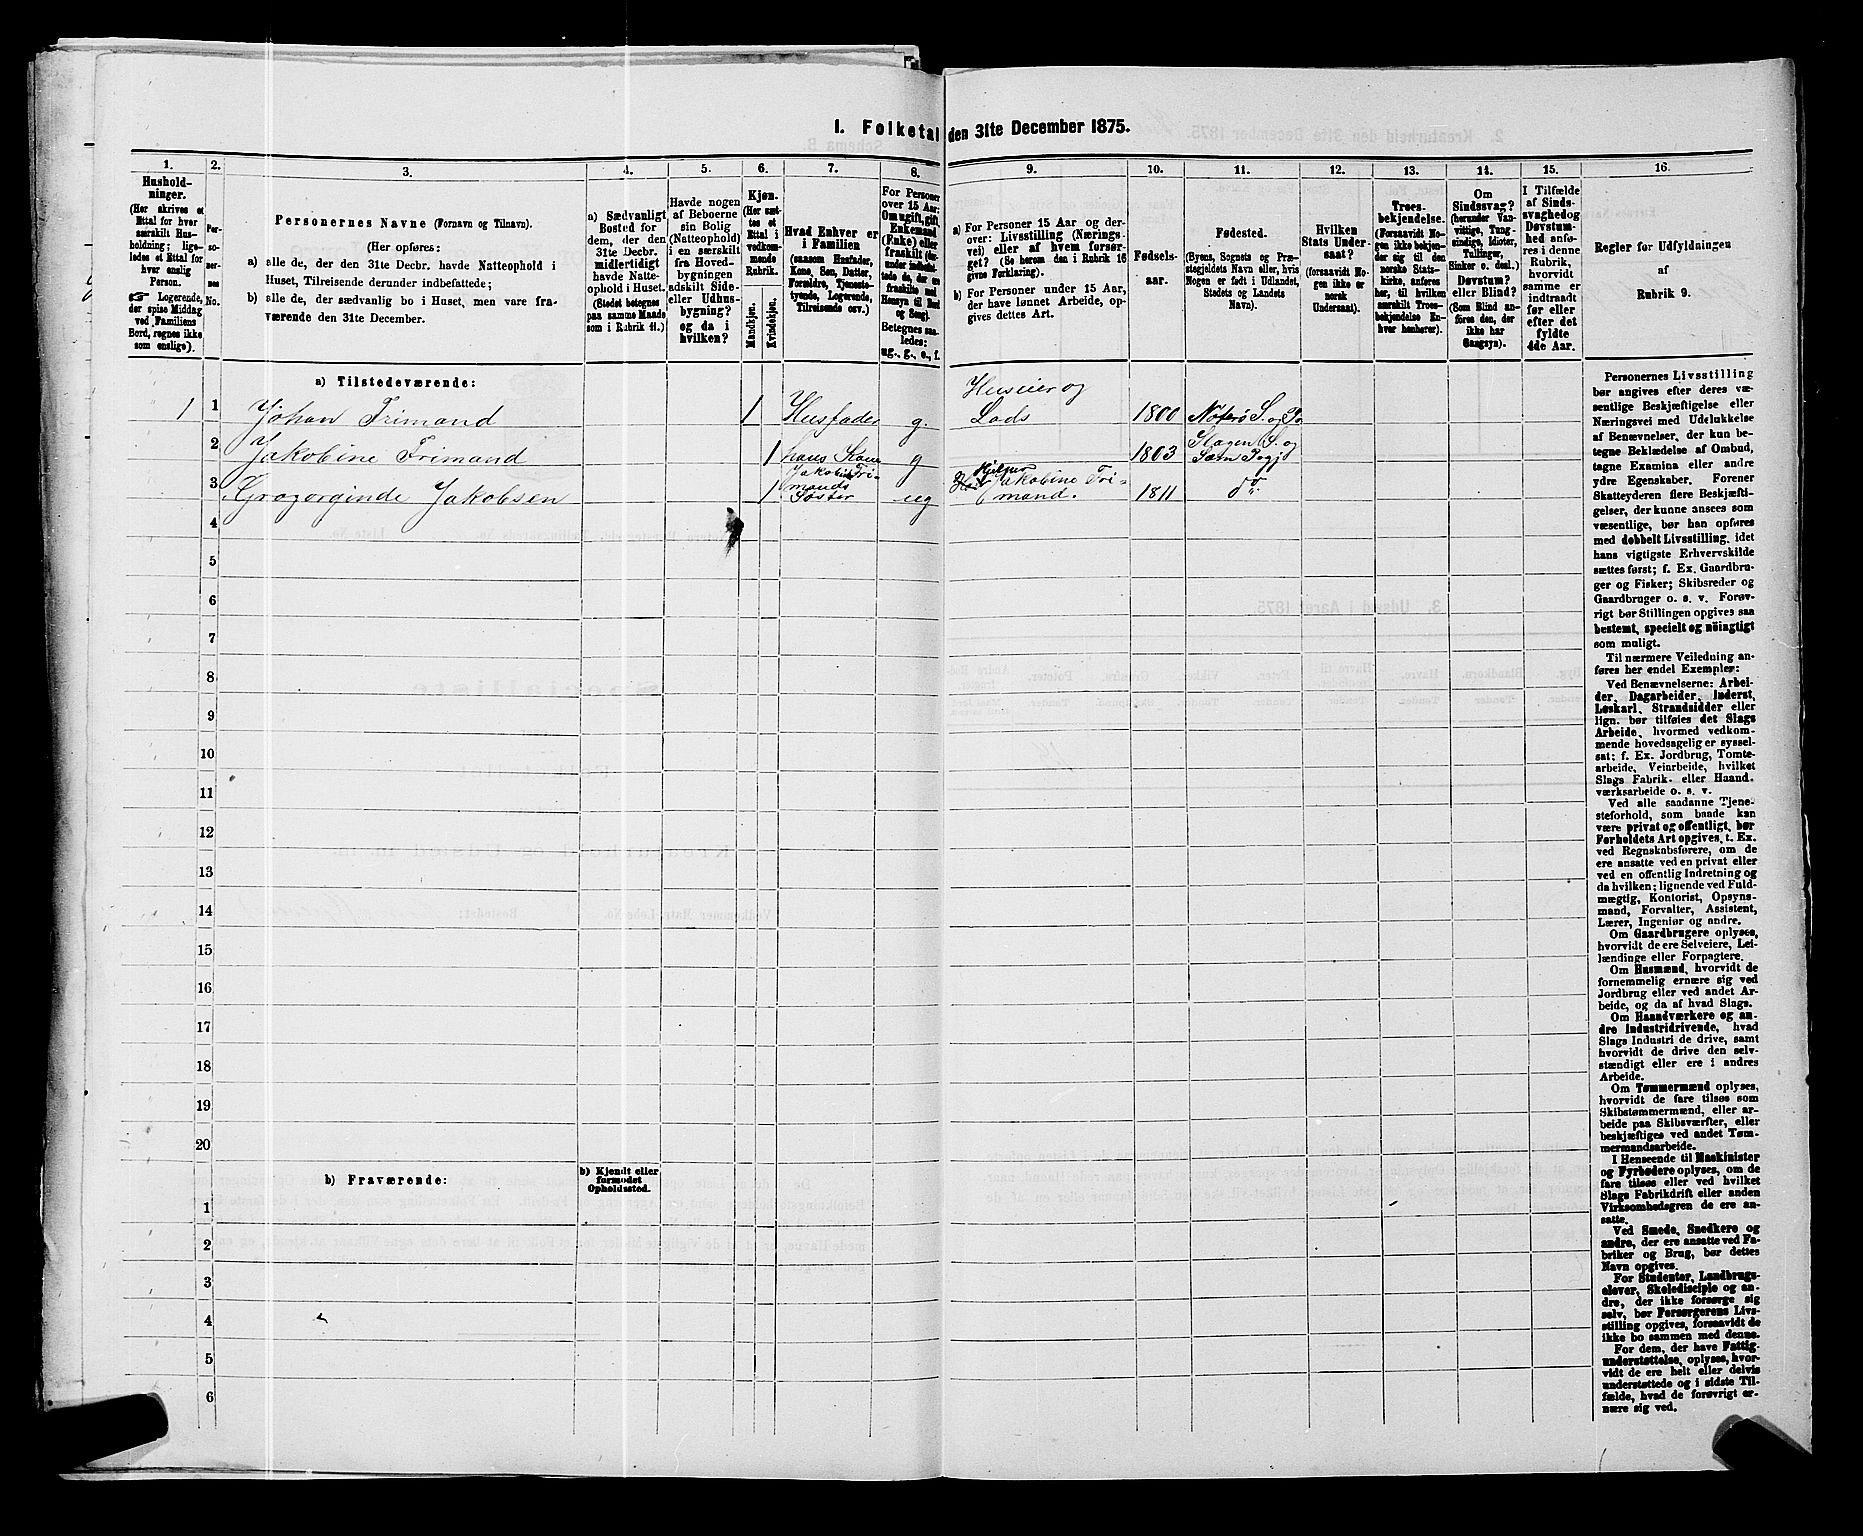 I. Folketal den 31te December 1875.
1. 2. 3. 4. 5. 6. 7. 8. 9. 10. 11. 12. 13. 14. 15. 16.
Hushold-
ninger.
(Her skrives et
Ettal for hver
særskilt Hus-
holdning; lige-
ledes et Ettal for
hver enslig
Person.
☞ Logerende,
der spise Middag
ved Familiens
Bord, regnes ikke
som enslige).
Per-
so-
ner-
nes
No.
Personernes Navne (Fornavn og Tilnavn).
(Her opføres:
a) alle de, der den 31te Decbr. havde Natteophold i
Huset, Tilreisende derunder indbefattede;
b) alle de, der sædvanlig bo i Huset, men vare fra-
værende den 31te December.
a) Sædvanligt
Bosted for
dem, der den
31te Decbr.
midlertidigt
havde Natte-
ophold i Huset.
(Stedet betegnes
paa samme Maade
som i Rubrik 11.)
Havde nogen
af Beboerne
sin Bolig
(Natteophold)
i en særskilt
fra Hoved-
bygningen
adskilt Side-
eller Udhus-
bygning?
og da i
hvilken?
Kjøn.
(Her sæt-
tes et
Ettal i
vedkom-
mende
Rubrik.
Mandkjøn.
Kvindekjøn.
Hvad Enhver er
i Familien
(saasom Husfader,
Kone, Søn, Datter,
Forældre, Tjeneste-
tyende, Logerende,
Tilreisende osv.)
For Personer
over 15 Aar:
Om ugift, gift,
Enkemand
(Enke) eller
fraskilt
Betegnes saa-
ledes:
ug., g., e., f.
a) For Personer 15 Aar og der-
over: Livsstilling (Nærings-
vei) eller af hvem forsør-
get? (Se herom den i Rubrik 16
givne Forklaring).
b) For Personer under 15 Aar,
der have lønnet Arbeide, op-
gives dettes Art.
Fødsels-
aar.
Fødested.
(Byens, Sognets og Præ-
stegjeldets Navn eller, hvis
Nogen er født i Udlandet,
Stedets og Landets
Navn).
Hvilken
Stats Under-
saat?
(forsaavidt No-
gen ikke er
norsk
Undersaat).
Troes-
bekjendelse.
(Forsaavidt No-
gen ikke bekjen-
der sig til den
norske Stats-
kirke, anføres
her, til hvilken
særskilt Troes-
bekjendelse En-
hver henhører).
Om
Sindssvag?
(herunder Van-
vittige, Tung-
sindige, Idioter,
Tullinger,
Sinker o. desl.)
Døvstum?
eller Blind?
(Som Blind an-
føres den, der
ikke har
Gangsyn).
I Tilfælde
af Sinds-
svaghed og
Døvstum-
hed anfø-
res i denne
Rubrik,
hvorvidt
samme er
indtraadt
før eller
efter det
fyldte
4de Aar.
Regler for Udfyldningen
af
Rubrik 9.
a) Tilstedeværende:
1 1 Johan Frimand 1 Husfader g. Huseier og
Lods 1800 Nøterø S. og P.
2 Jakobine Frimand 1 hans Kone g 1803 Slagen S. og
Sæm Prgj
3 Gregorginde Jakobsen 1 Jakobine Fri-
mands
Søster ug Hjelper
Jakobine Fri-
mand. 1811 do
4
5
6
7
8
9
10
11
12
13
14
15
16
17
18
19
20
b) Fraværende:
b) Kjendt eller
formodet
Opholdssted.
1
2
3
4
5
6
Personernes Livsstilling
bør angives efter deres væ-
sentlige Beskjæftigelse eller
Næringsvei med Udelukkelse
af Benævnelser, der kun be-
tegne Beklædelse af Ombud,
tagne Examina eller andre
ydre Egenskaber. Forener
Skatteyderen flere Beskjæfti-
gelser, der kunne ansees som
væsentlige, bør han opføres
med dobbelt Livsstilling, idet
hans vigtigste Erhvervskilde
sættes først; f. Ex. Gaardbru-
ger og Fisker; Skibsreder og
Gaardbruger o. s. v. Forøv-
rigt bør Stillingen opgives saa
bestemt, specielt og nöiagtigt
som muligt.
Til nærmere Veiledning an-
føres her endel Exempler:
Ved Benævnelserne: Arbei-
der, Dagarbeider, Inderst,
Løskarl, Strandsidder eller
lign. bør tilføies det Slags
Arbeide, hvormed vedkom-
mende hovedsagelig er syssel-
sat; f. Ex. Jordbrug, Tomte-
arbeide, Veiarbeide, hvilket
Slags Fabrik- eller Haand-
værksarbeide o. s. v.
Ved alle saadanne Tjene-
steforhold, som baade kan
være privat og offentligt, bør
Forholdets Art opgives, t. Ex.
ved Regnskabsførere, om de
ere ansatte ved en privat eller
ved en offentlig Indretning og
da hvilken; lignende ved Fuld-
mægtig, Kontorist, Opsyns-
mand, Forvalter, Assistent,
Lærer, Ingeniør og andre.
Om Gaardbrugere oplyses,
hvorvidt de ere Selveiere, Lei-
lændinge eller Forpagtere.
Om Husmænd, hvorvidt de
fornemmelig ernære sig ved
Jordbrug eller ved andet Ar-
beide, og da af hvad Slags.
Om Haandværkere og an-
dre Industridrivende, hvad
Slags Industri de drive, samt
hvorvidt de drive den selv-
stændigt eller ere i andres
Arbeide.
Om Tømmermænd oplyses,
hvorvidt de fare tilsøs som
Skibstømmermænd, eller ar-
beide paa Skibsværfter, eller
beskjæftiges ved andet Tøm-
mermandsarbeide.
I Henseende til Maskinister
og Fyrbødere oplyses, om de
fare tilsøs eller ved hvilket
Slags Fabrikdrift eller anden
Virksomhedsgren de ere an-
satte.
Ved Smede, Snedkere og
andre, der ere ansatte ved Fa-
briker og Brug, bør dettes
Navn opgives.
For Studenter, Landbrugs-
elever, Skoledisciple og an-
dre, der ikke forsørge sig
selv, bør Forsørgerens Livs-
stilling opgives, forsaavidt de
ikke bo sammen med denne.
For dem, der have Fattig-
understøttelse, oplyses, hvor-
vidt de ere helt eller delvis
understøttede og i sidste Til-
fælde, hvad de forøvrigt er-
nære sig ved.